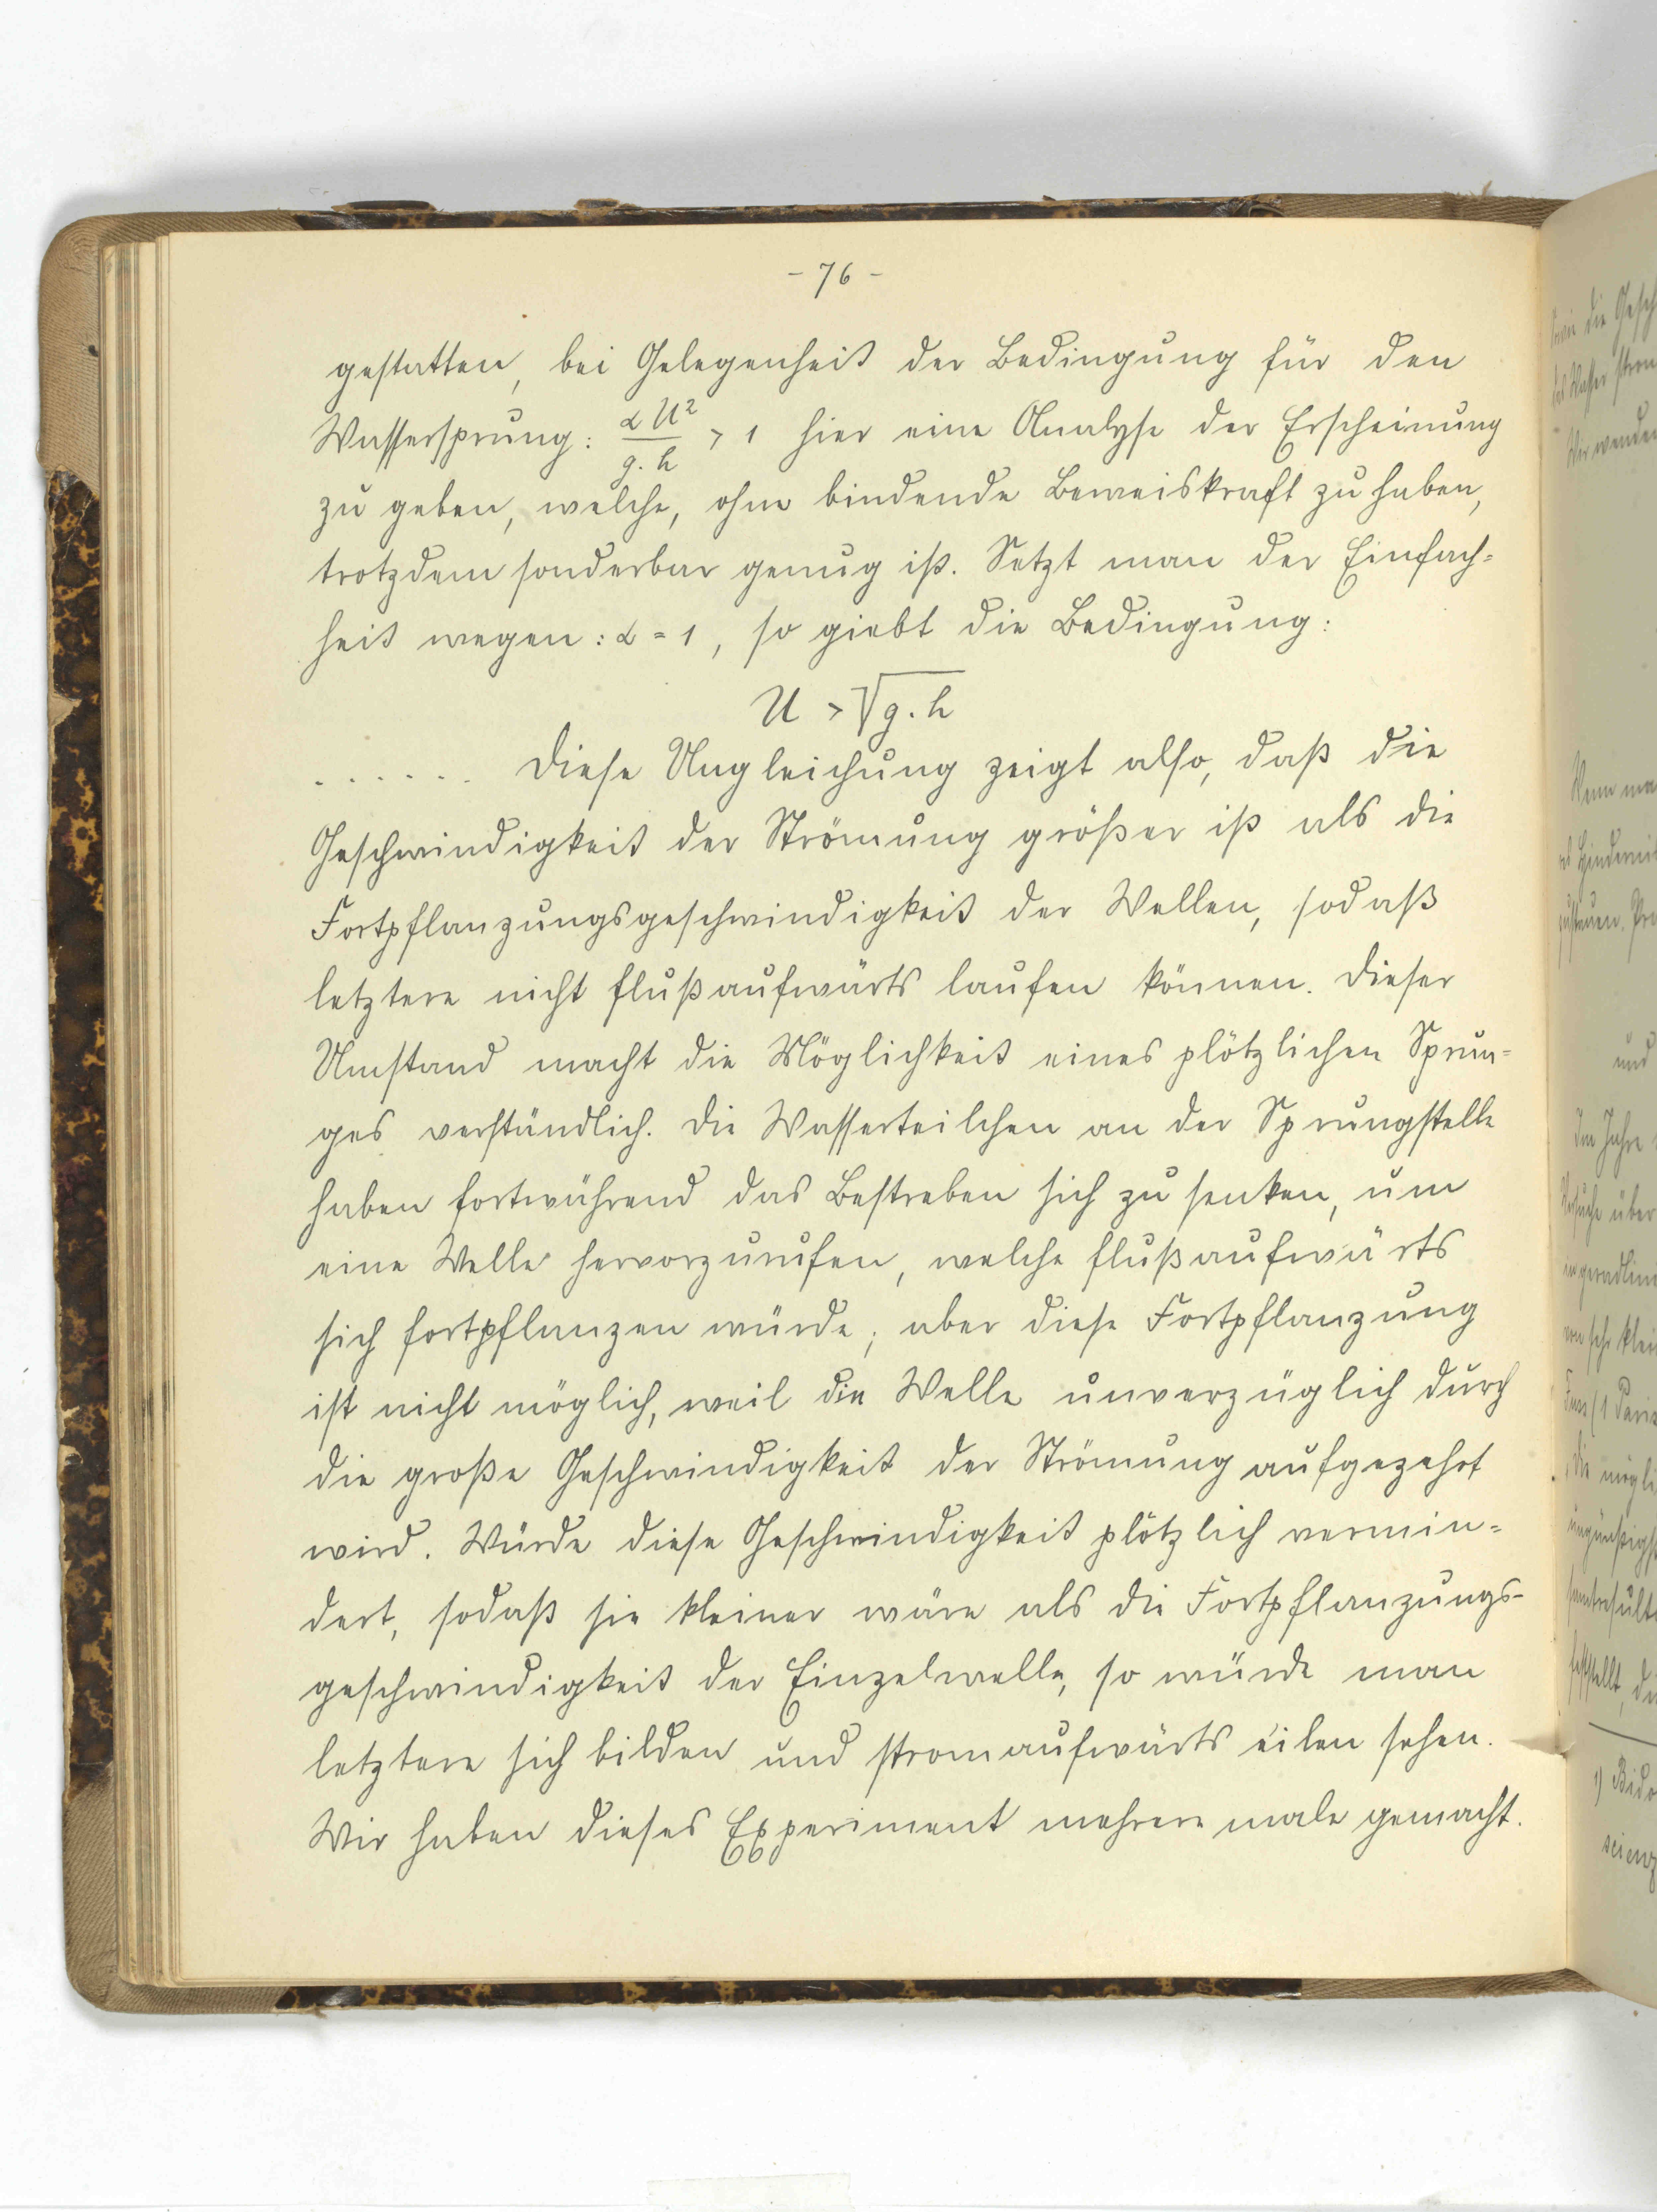 - 76 -
gestatten, bei Gelegenheit der Bedingung für den
Wassersprung: α U² / g. h > 1 hier eine Analyse der Erscheinung
zu geben, welche, ohne bindende Beweiskraft zu haben,
trotzdem sonderbar genug ist. Setzt man der Einfach=
heit wegen: α = 1, so giebt die Bedingung:
U > √g. h
. . . . . . Diese Ungleichung zeigt also, daß die
Geschwindigkeit der Strömung größer ist als die
Fortpflanzungsgeschwindigkeit der Wellen, sodaß
letztere nicht flußaufwärts laufen können. Dieser
Umstand macht die Möglichkeit eines plötzlichen Sprun=
ges verständlich. Die Wasserteilchen an der Sprungstelle
haben fortwährend das Bestreben sich zu senken, um
eine Welle hervorzurufen, welche flußaufwärts
sich fortpflanzen würde; aber diese Fortpflanzung
ist nicht möglich, weil die Welle unverzüglich durch
die große Geschwindigkeit der Strömung aufgezehrt
wird. Würde diese Geschwindigkeit plötzlich vermin=
dert, sodaß sie kleiner wäre als die Fortpflanzungs-
geschwindigkeit der Einzelwelle, so würde man
letztere sich bilden und stromaufwärts eilen sehen.
Wir haben dieses Experiment mehrere male gemacht.
und
Im Jahre